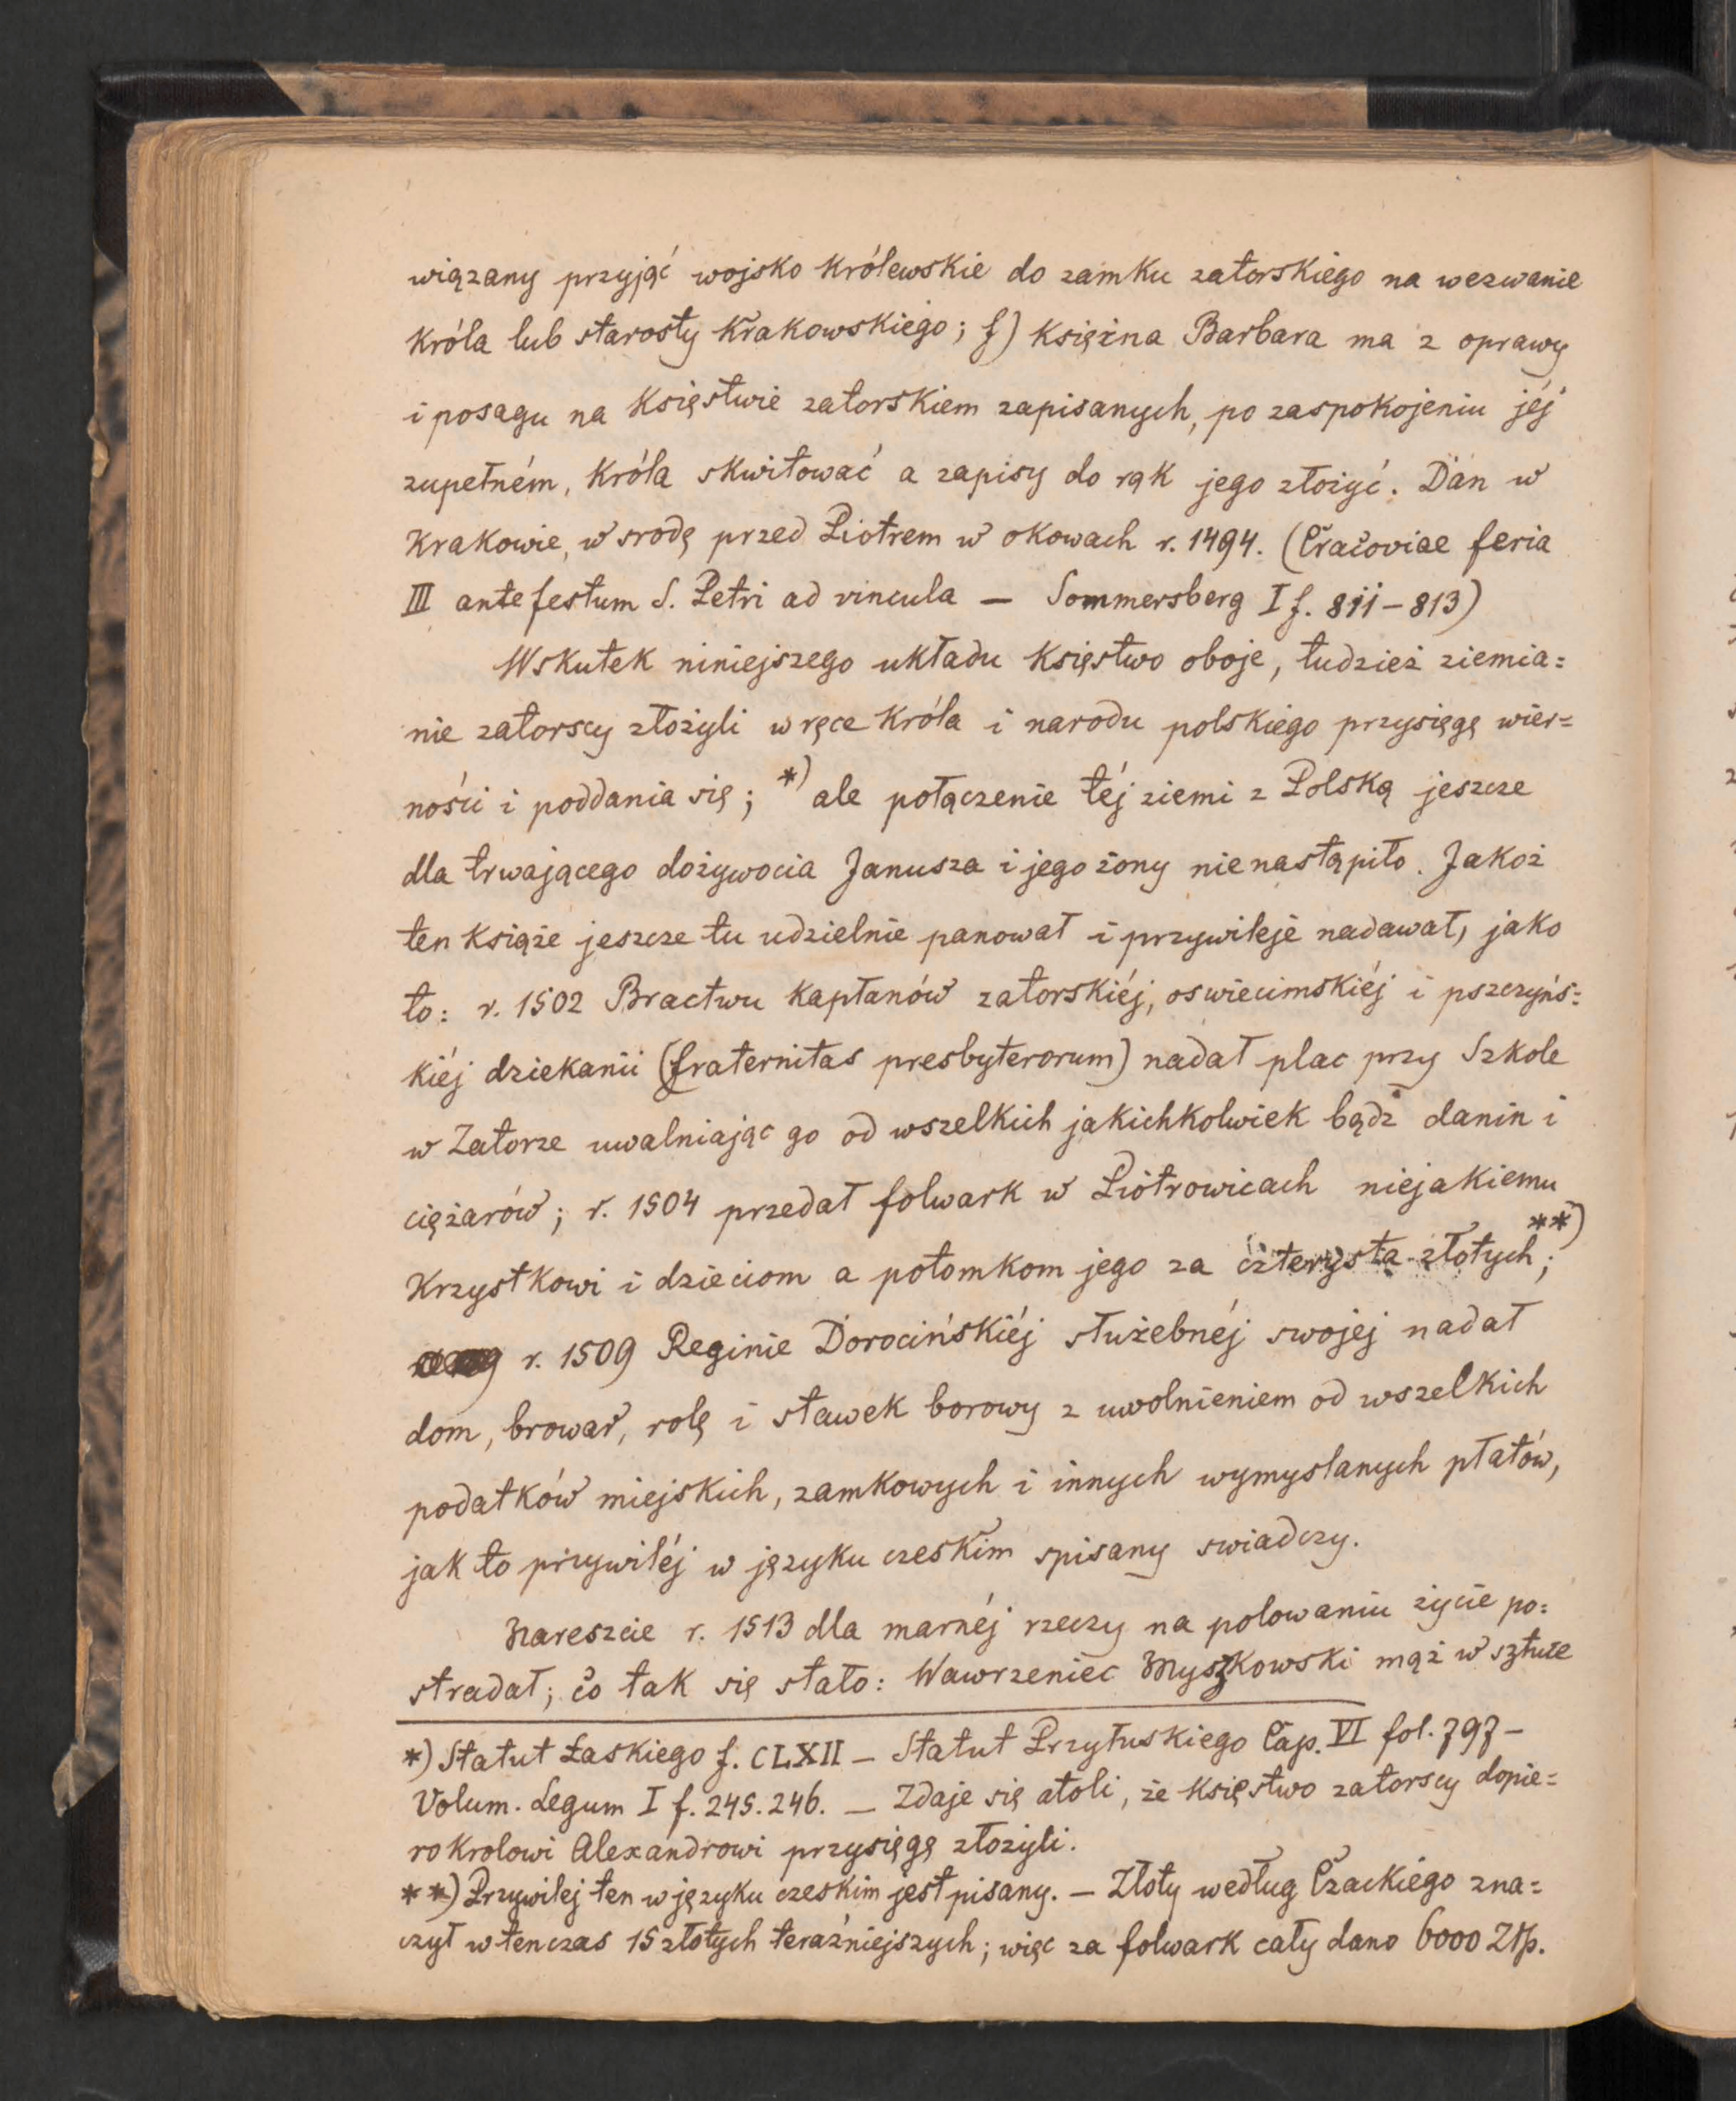 wiązany przyjąć wojsko królewskie do zamku zatorskiego na wezwanie
króla lub starosty krakowskiego; f) księżna Barbara ma z oprawy
i posagu na księstwie zatorskiem zapisanych, po zaspokojeniu jéj
zupełném, króla skwitować a zapisy do rąk jego złożyć. Dan w
Krakowie, w srodę przed Piotrem w okowach r. 1494. (Cracoviae feria
III ante festum S. Petri ad vincula — Sommersberg I f. 811–813)
Wskutek niniejszego układu księstwo oboje, tudzież ziemia=
nie zatorscy złożyli w ręce króla i narodu polskiego przysięgę wier=
ności i poddania się; *) ale połączenie téj ziemi z Polską jeszcze
dla trwającego dożywocia Janusza i jego żony nie nastąpiło. Jakoż
ten książe jeszcze tu udzielnie panował i przywileje nadawał, jako
to: r. 1502 Bractwu kapłanów zatorskiéj, oswiecimskiéj i pszczyńs=
kiéj dziekanii (fraternitas presbyterorum) nadał plac przy Szkole
w Zatorze uwalniając go od wszelkich jakichkolwiek bądź danin i
ciężarów; r. 1504 przedał folwark w Piotrowicach niejakiemu
Krzystkowi i dzieciom a potomkom jego za czterysta złotych; **)
r. 1509 Reginie Dorocińskiéj służebnéj swojej nadał
dom, browar, rolę i stawek borowy z uwolnieniem od wszelkich
podatków miejskich, zamkowych i innych wymyslanych płatów,
jak to przywiléj w języku czeskim spisany swiadczy.
Nareszcie r. 1513 dla marnéj rzeczy na polowaniu życie po=
stradał; co tak się stało: Wawrzeniec Myszkowski mąż w sztuce
*) Statut Łaskiego f. CLXII — Statut Przyłuskiego Cap. VI fol. 797 —
Volum. Legum I f. 245. 246. — Zdaje się atoli, że księstwo zatorscy dopie=
ro krolowi Alexandrowi przysięgę złożyli.
**) Przywilej ten w języku czeskim jest pisany. — Złoty według Czackiego zna=
czył wtenczas 15 złotych teraźniejszych; więc za folwark cały dano 6000 Złp.